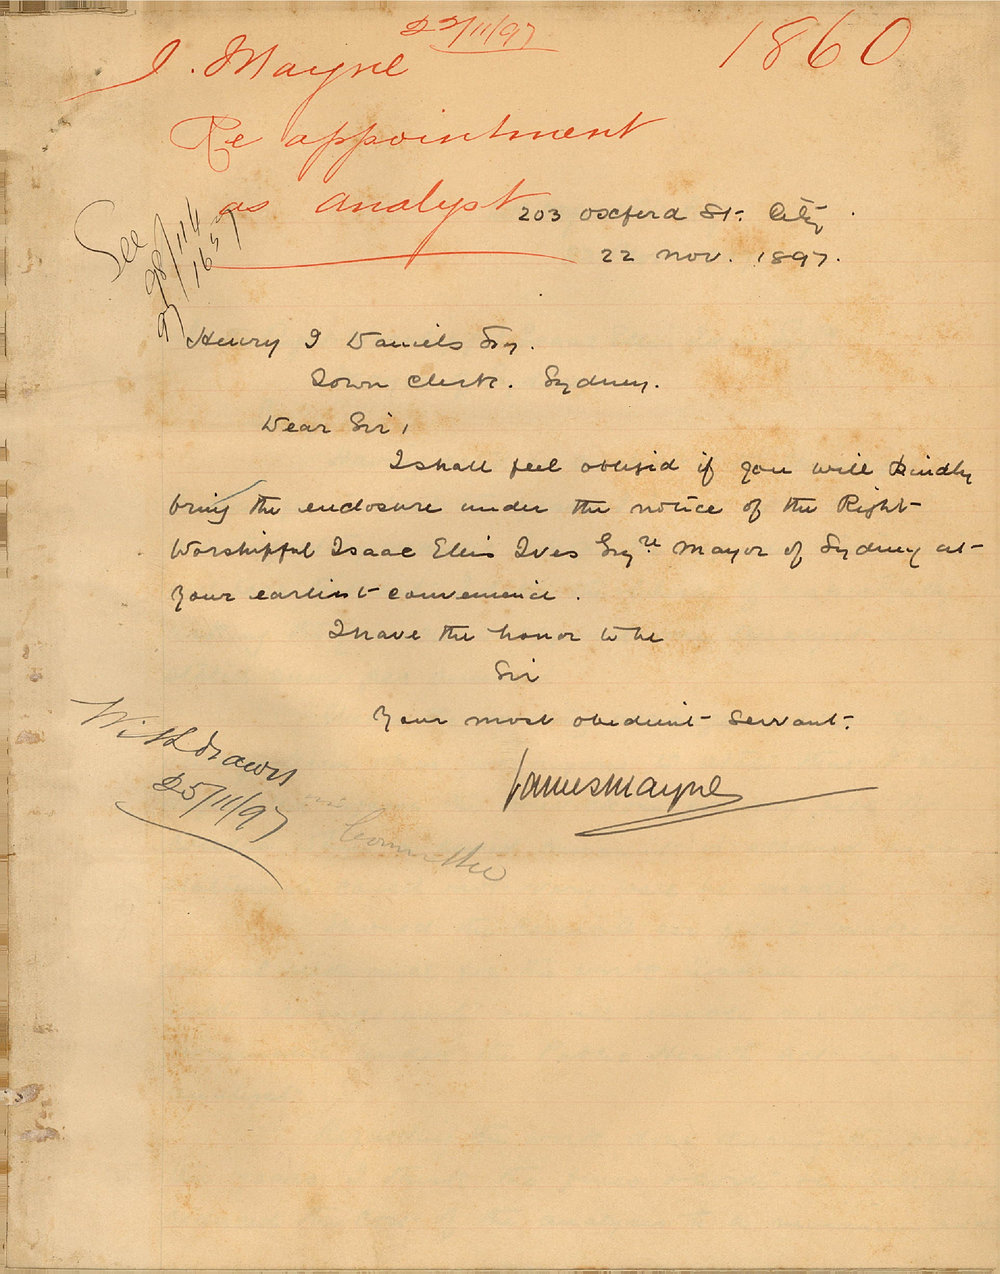 22/11/97
J. Mayne
1860
Re appointment
as analyst
203 Oxford St. City.
22 Nov. 1897.
See
98/114
97/1657
Henry J Daniels Esq.
Town Clerk. Sydney.
Dear Sir,
I shall feel obligid if you will kindly
bring the enclosure under the notice of the Right
Worshipful Isaac Ellis Ives Esqre Mayor of Sydney at
your earliest convenience.
I have the honor to be
Sir
Your most obedient servant.
James Mayne
Withdrawn
25/11/97
in Committee